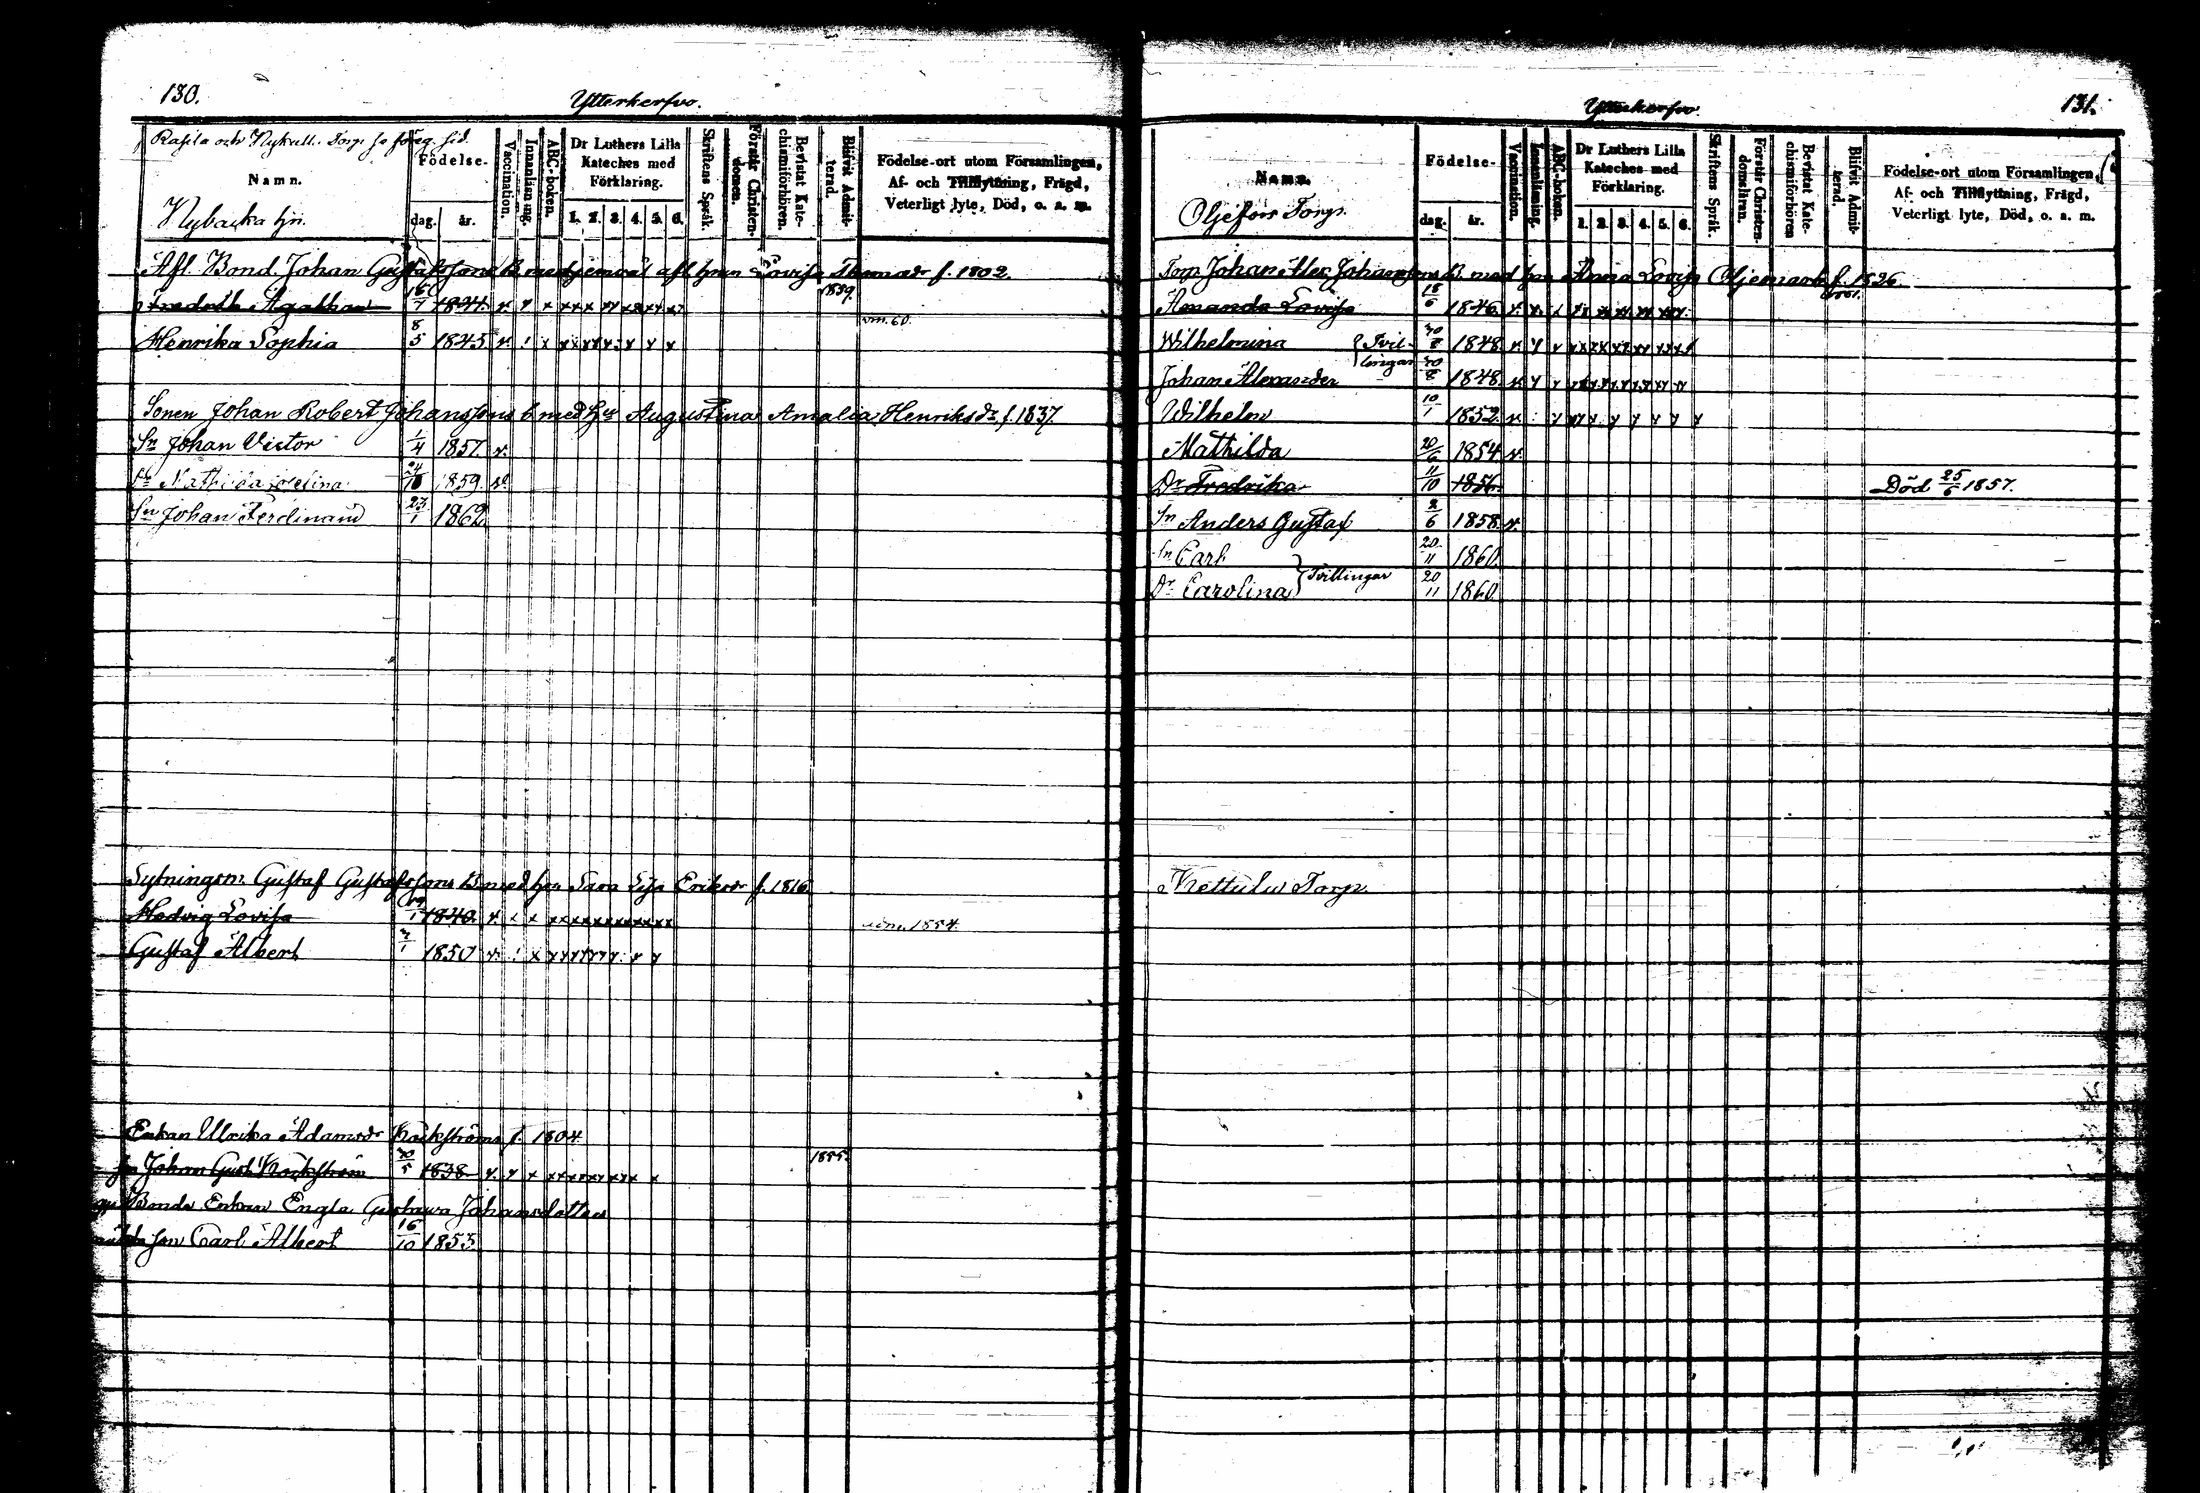 130.
Ytterkerfvo.
Rafila och Nykull. Torp. se föreg. sid.
Namn.
Födelse-
dag. år.
Vaccination.
Innanläsning.
ABC-boken.
Dr Luthers Lilla Kateches med Förklaring.
1. 2. 3. 4. 5. 6.
Skriftens Språk.
Förstår Christendomen.
Bevistat Katechismiförhören.
Blifvit Admitterad.
Födelse-ort utom Församlingen,
Af- och Tillflyttning, Frägd,
Veterligt lyte, Död, o. a. m.
Nybacka hn.
Afl. Bond. Johan Gustafssons B med afl hun Lovisa Thomasdr f. 1802.
Fredrik Agathon 16/7 1844. v. 1859.
Henrika Sophia 8/5 1845 v. vm. 60.
Sonen Johan Robert Johanssons b med Hu Augustina Amalia Henriksdr f. 1837.
Sn Johan Victor 1/4 1857. v.
24/10 1859 v.
Sn Johan Ferdinand 27/1 1862
Sytningsm. Gustaf Gustafssons B med hu Sara Lisa Eriksdr f. 1816
Hedvig Lovisa 1840. v. 1854.
Gustaf Albert 7/1 1850 v.
Enkan Ulrika Adamsdr f. 1804
Johan Gust. 30/5 1838 v. 1855.
Bonde Enkan Engla Gustawa Johansdotter
son Carl Albert 16/10 1853
131.
Ytterkerfvo.
Namn.
Födelse-
dag. år.
Vaccination.
Innanläsning.
ABC-boken.
Dr Luthers Lilla Kateches med Förklaring.
1. 2. 3. 4. 5. 6.
Skriftens Språk.
Förstår Christendomsläran.
Bevistat Katechismiförhören
Blifvit Admitterad.
Födelse-ort utom Församlingen,
Af- och Tillflyttning, Frägd,
Veterligt lyte, Död, o. a. m.
Oljefors Torp.
Torp. Johan Alex. Johanssons B. med hu Anna Lovisa Oljemark f. 1826
Amanda Lovisa 18/6 1846. v. 1861.
Wilhelmina Tvillingar 30/8 1848. v.
Johan Alexander 30/8 1848. v.
Wilhelm 10/1 1852 v.
Mathilda 20/6 1854 v.
Dr Fredrika 11/10 1856. Död 25/6 1857.
Sn Anders Gustaf 2/6 1858. v.
Sn Carl Tvillingar 20/11 1860.
Dr Carolina 20/11 1860.
Mettulu Torp.